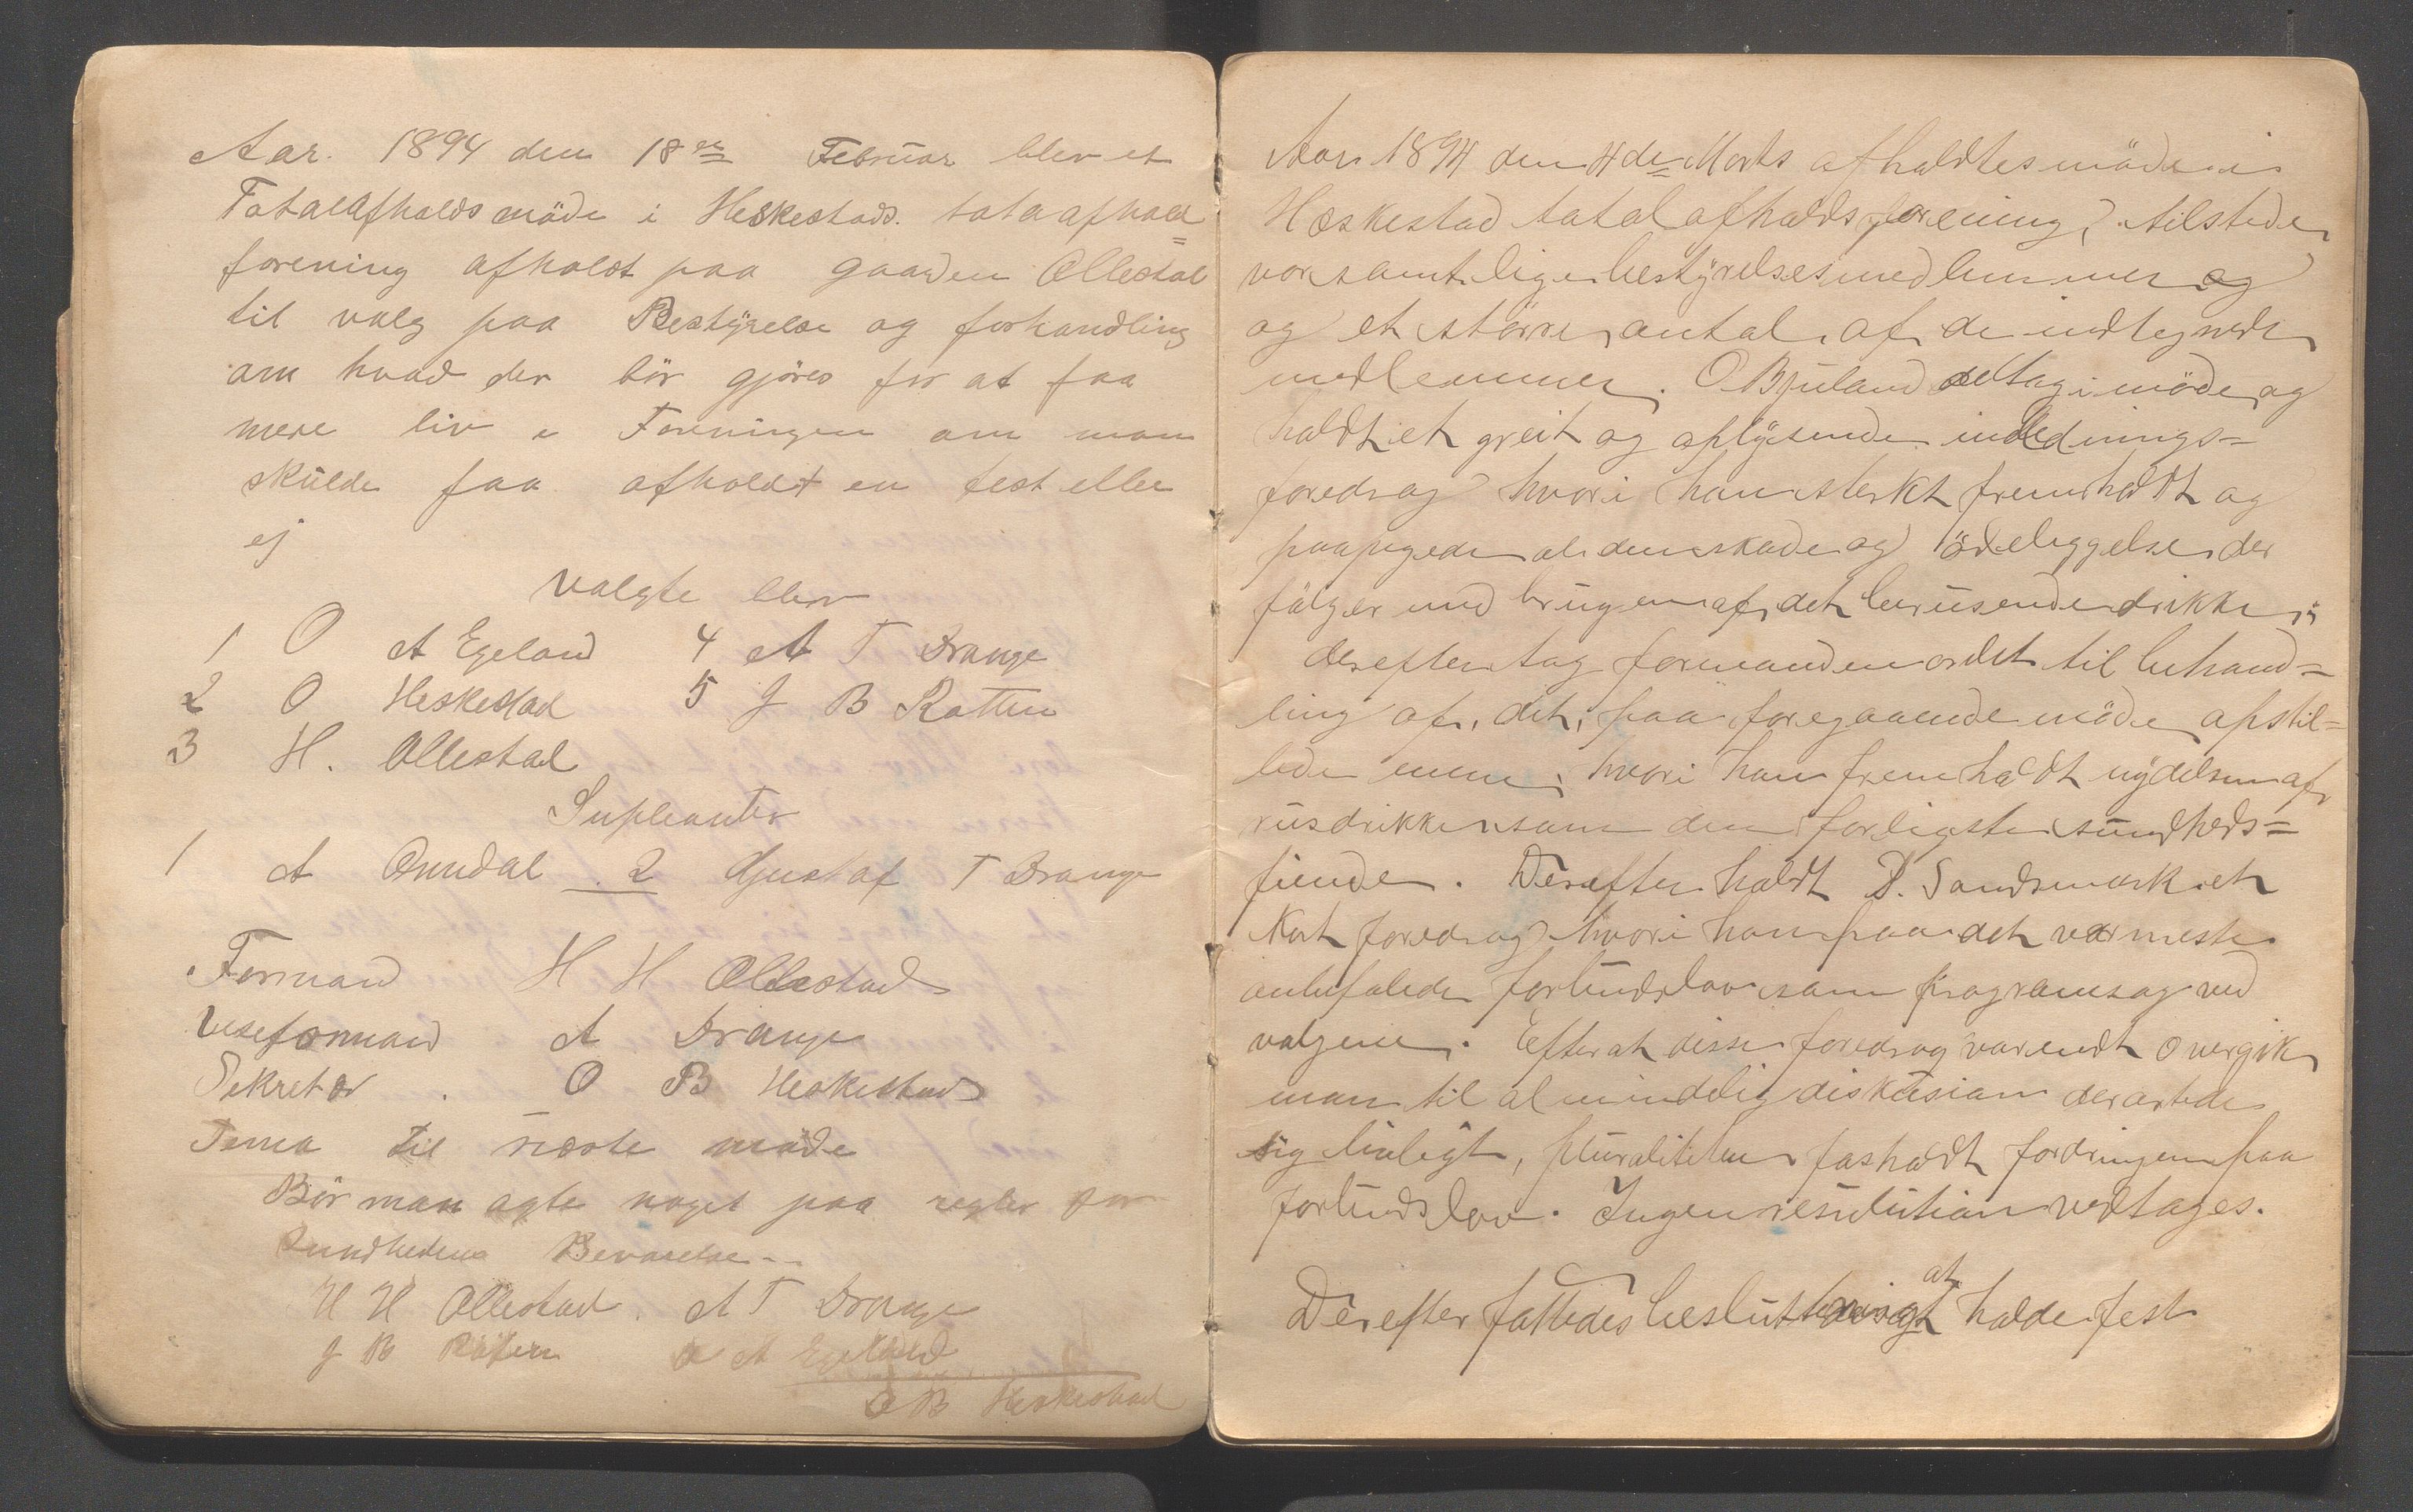 Aar. 1894 den 18de Februar blev et
Totalafholdsmøde i Heskestads. totaafhold=
forening afholdt paa gaarden Ollestad
til valg paa Bestyrelse og forhandling
om hvad der bör gjöres for at faa
mere liv i Foreningen om man
skulde faa afholdt en fest eller
ej
valgte blev
1 O A Egeland 4 A T Drange
2 O Heskestad 5 J B Røtten
3 H. Ollestad
Supleanter
1 A Omdal 2 Gjustaf T Drange
Formand H H Ollestad
Viseformand A Drange
Sekretær. O B Heskestad
Tema til næste møde
Bör man agte noget paa regler for
Sundhedens Bevarelse..
H H Ollestad. A T Drange
J B Røtten O A Egeland
O B Heskestad
Aar 1894 den 4de Marts afholdtes möde i
Heskestad totalafholdsforening, tilstede
var samtlige bestyrelsesmedlemmer og
og et större antal af de indtegnede
medlemmer. O Bjuland deltog i möde og
holdt et greit og oplysende indlednings=
foredrag hvori han sterkt fremholdt og
paapegede al den skade og ödeleggelse der
fölger med brugen af det berusende drikke;
derefter tog formanden ordet til behand=
ling af det, paa foregaaende möde opstil=
lede emne, hvori han fremholdt nydelsen af
rusdrikke som den farligste sundheds=
fiende. Derefter holdt D. Sandsmark et
kort foredrag hvori han paa det varmeste
anbefalede forbudslov som programsag ved
valgene. Efter at disse foredrag var endt overgik
man til almindelig diskusion der artede
sig livligt, pluraliteten fasholdt fordringen paa
forbudslov. Ingen resulution vedtages.
Derefter fattedes beslutning at holde fest